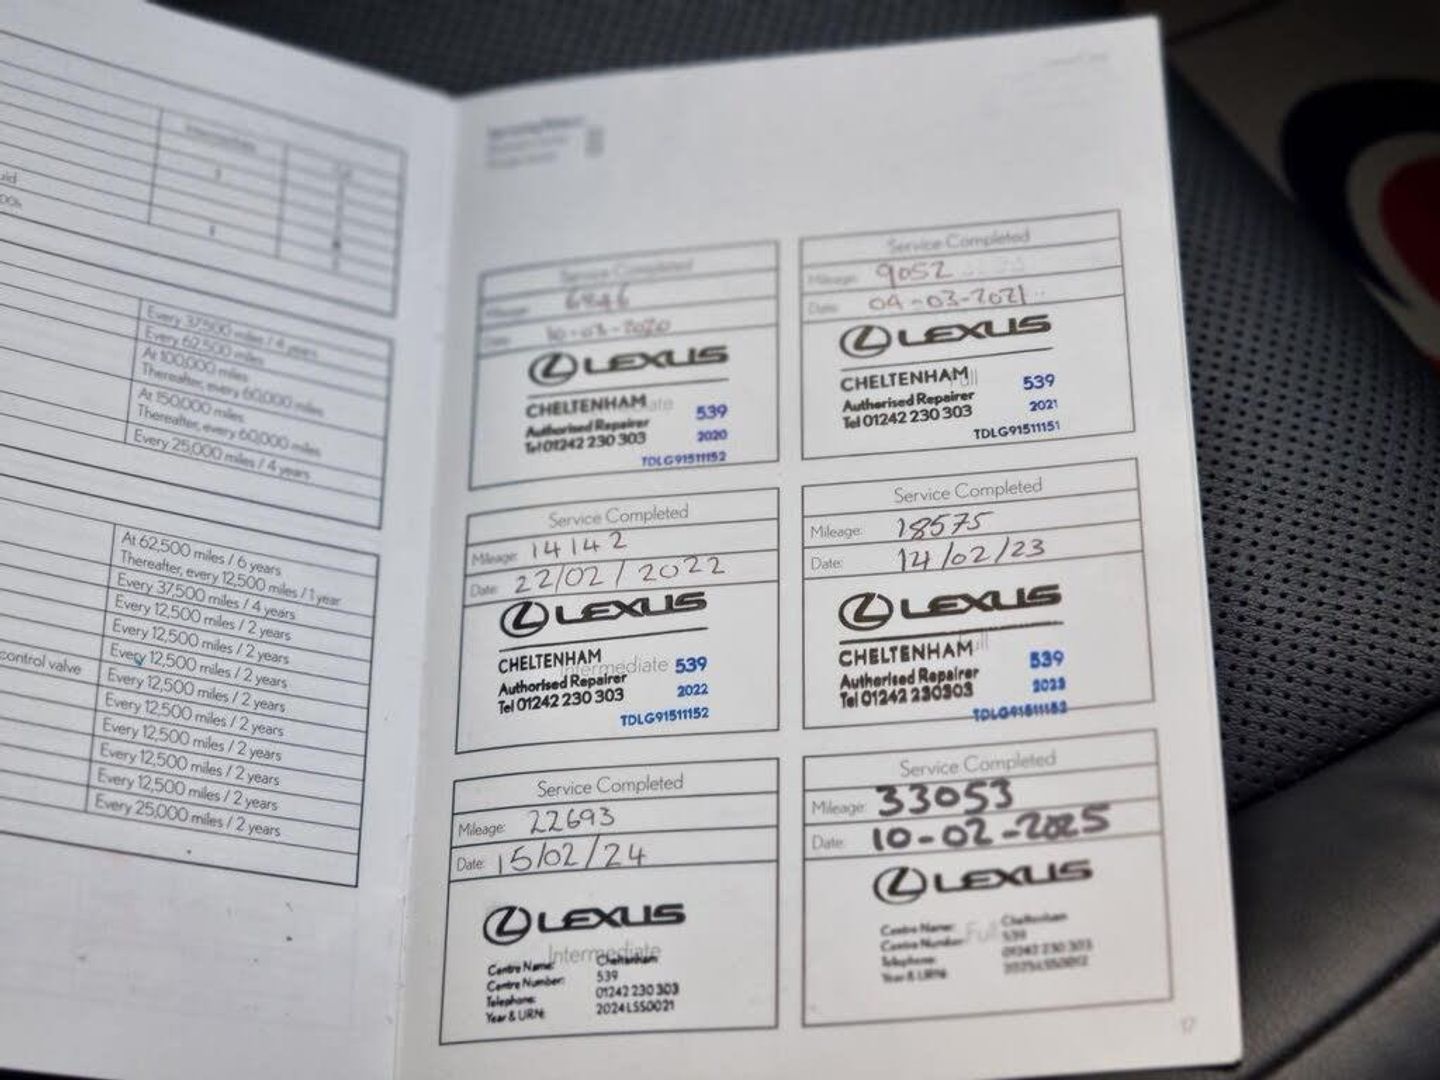 Every 37,500 miles / 4 years
Every 62,500 miles
At 100,000 miles
Thereafter, every 60,000 miles
At 150,000 miles
Thereafter, every 60,000 miles
Every 25,000 miles / 4 years
At 62,500 miles / 6 years
Thereafter, every 12,500 miles / 1 year
Every 37,500 miles / 4 years
Every 12,500 miles / 2 years
Every 12,500 miles / 2 years
control valve Every 12,500 miles / 2 years
Every 12,500 miles / 2 years
Every 12,500 miles / 2 years
Every 12,500 miles / 2 years
Every 12,500 miles / 2 years
Every 12,500 miles / 2 years
Every 25,000 miles / 2 years
Service Completed
Mileage:
Date: 10-03-2020
LEXUS
CHELTENHAM
Authorised Repairer 539
Tel 01242 230 303 2020
TDLG91511152
Service Completed
Mileage: 9052
Date: 04-03-2021
LEXUS
CHELTENHAM Full
Authorised Repairer 539
Tel 01242 230 303 2021
TDLG91511151
Service Completed
Mileage: 14142
Date: 22/02/2022
LEXUS
CHELTENHAM
Intermediate 539
Authorised Repairer
Tel 01242 230 303 2022
TDLG91511152
Service Completed
Mileage: 18575
Date: 14/02/23
LEXUS
CHELTENHAM Full
Authorised Repairer 539
Tel 01242 230303 2023
Service Completed
Mileage: 22693
Date: 15/02/24
LEXUS
Intermediate
Centre Name: Cheltenham
Centre Number: 539
Telephone: 01242 230 303
Year & URN: 2024LSS0021
Service Completed
Mileage: 33053
Date: 10-02-2025
LEXUS
Centre Name: Cheltenham
Centre Number: Full 539
Telephone: 01242 230 303
Year & URN:
17